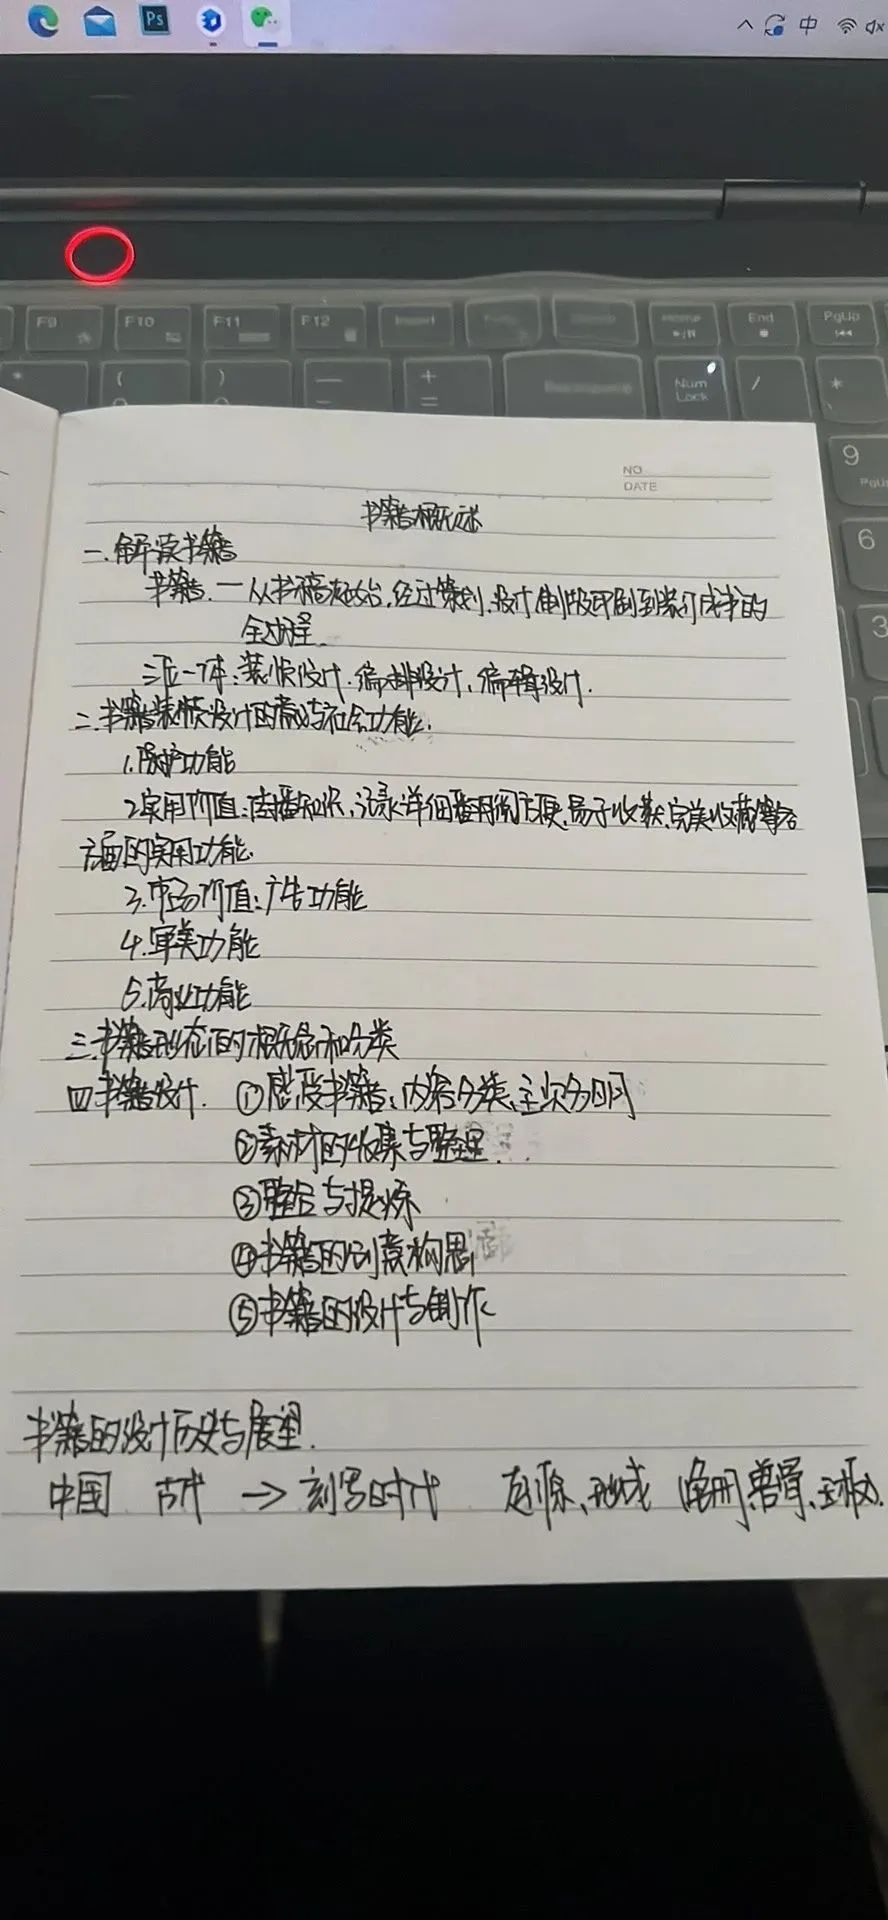 Ps
中
F9
F10
F11
F12
Insert
Home
End
PgUp
(
)
—
+
=
Backspace
Num
Lock
/
*
9
PgUp
6
3
NO
DATE
书籍概述
一.解读书籍
书籍.一从书稿起始,经过策划.设计制版印刷到装订成书的
全过程.
三位一体:装帧设计.编排设计、编辑设计.
二.书籍装帧设计的 与社会功能.
1.保护功能
2.实用价值:传播知识、记录详细翻阅方便、易于收 、完美收藏等各
方面的实用功能.
3.市场价值:广告功能
4.审美功能
5.商业功能
三.书籍形态的概念和分类
四书籍设计. ①感受书籍:内容分类、主次分明
②素材的收集与整理.
③整合与提炼
④书籍的创意构思
⑤书籍的设计与制作
书籍的设计历史与展望.
中国 古代 → 刻写时代 起源、形成 兽骨、